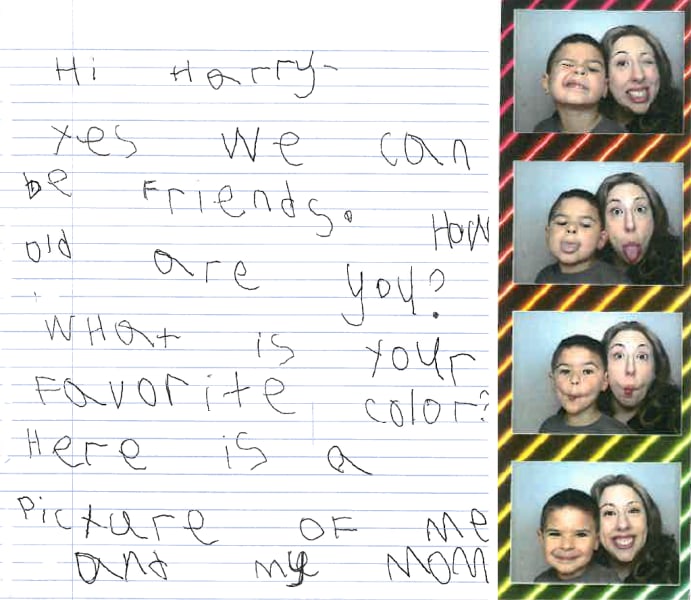 Hi Harry-
yes we can
be Friends. How
old are you?
WHat is your
Favorite color?
Here is a
Picture OF me
and my MOM